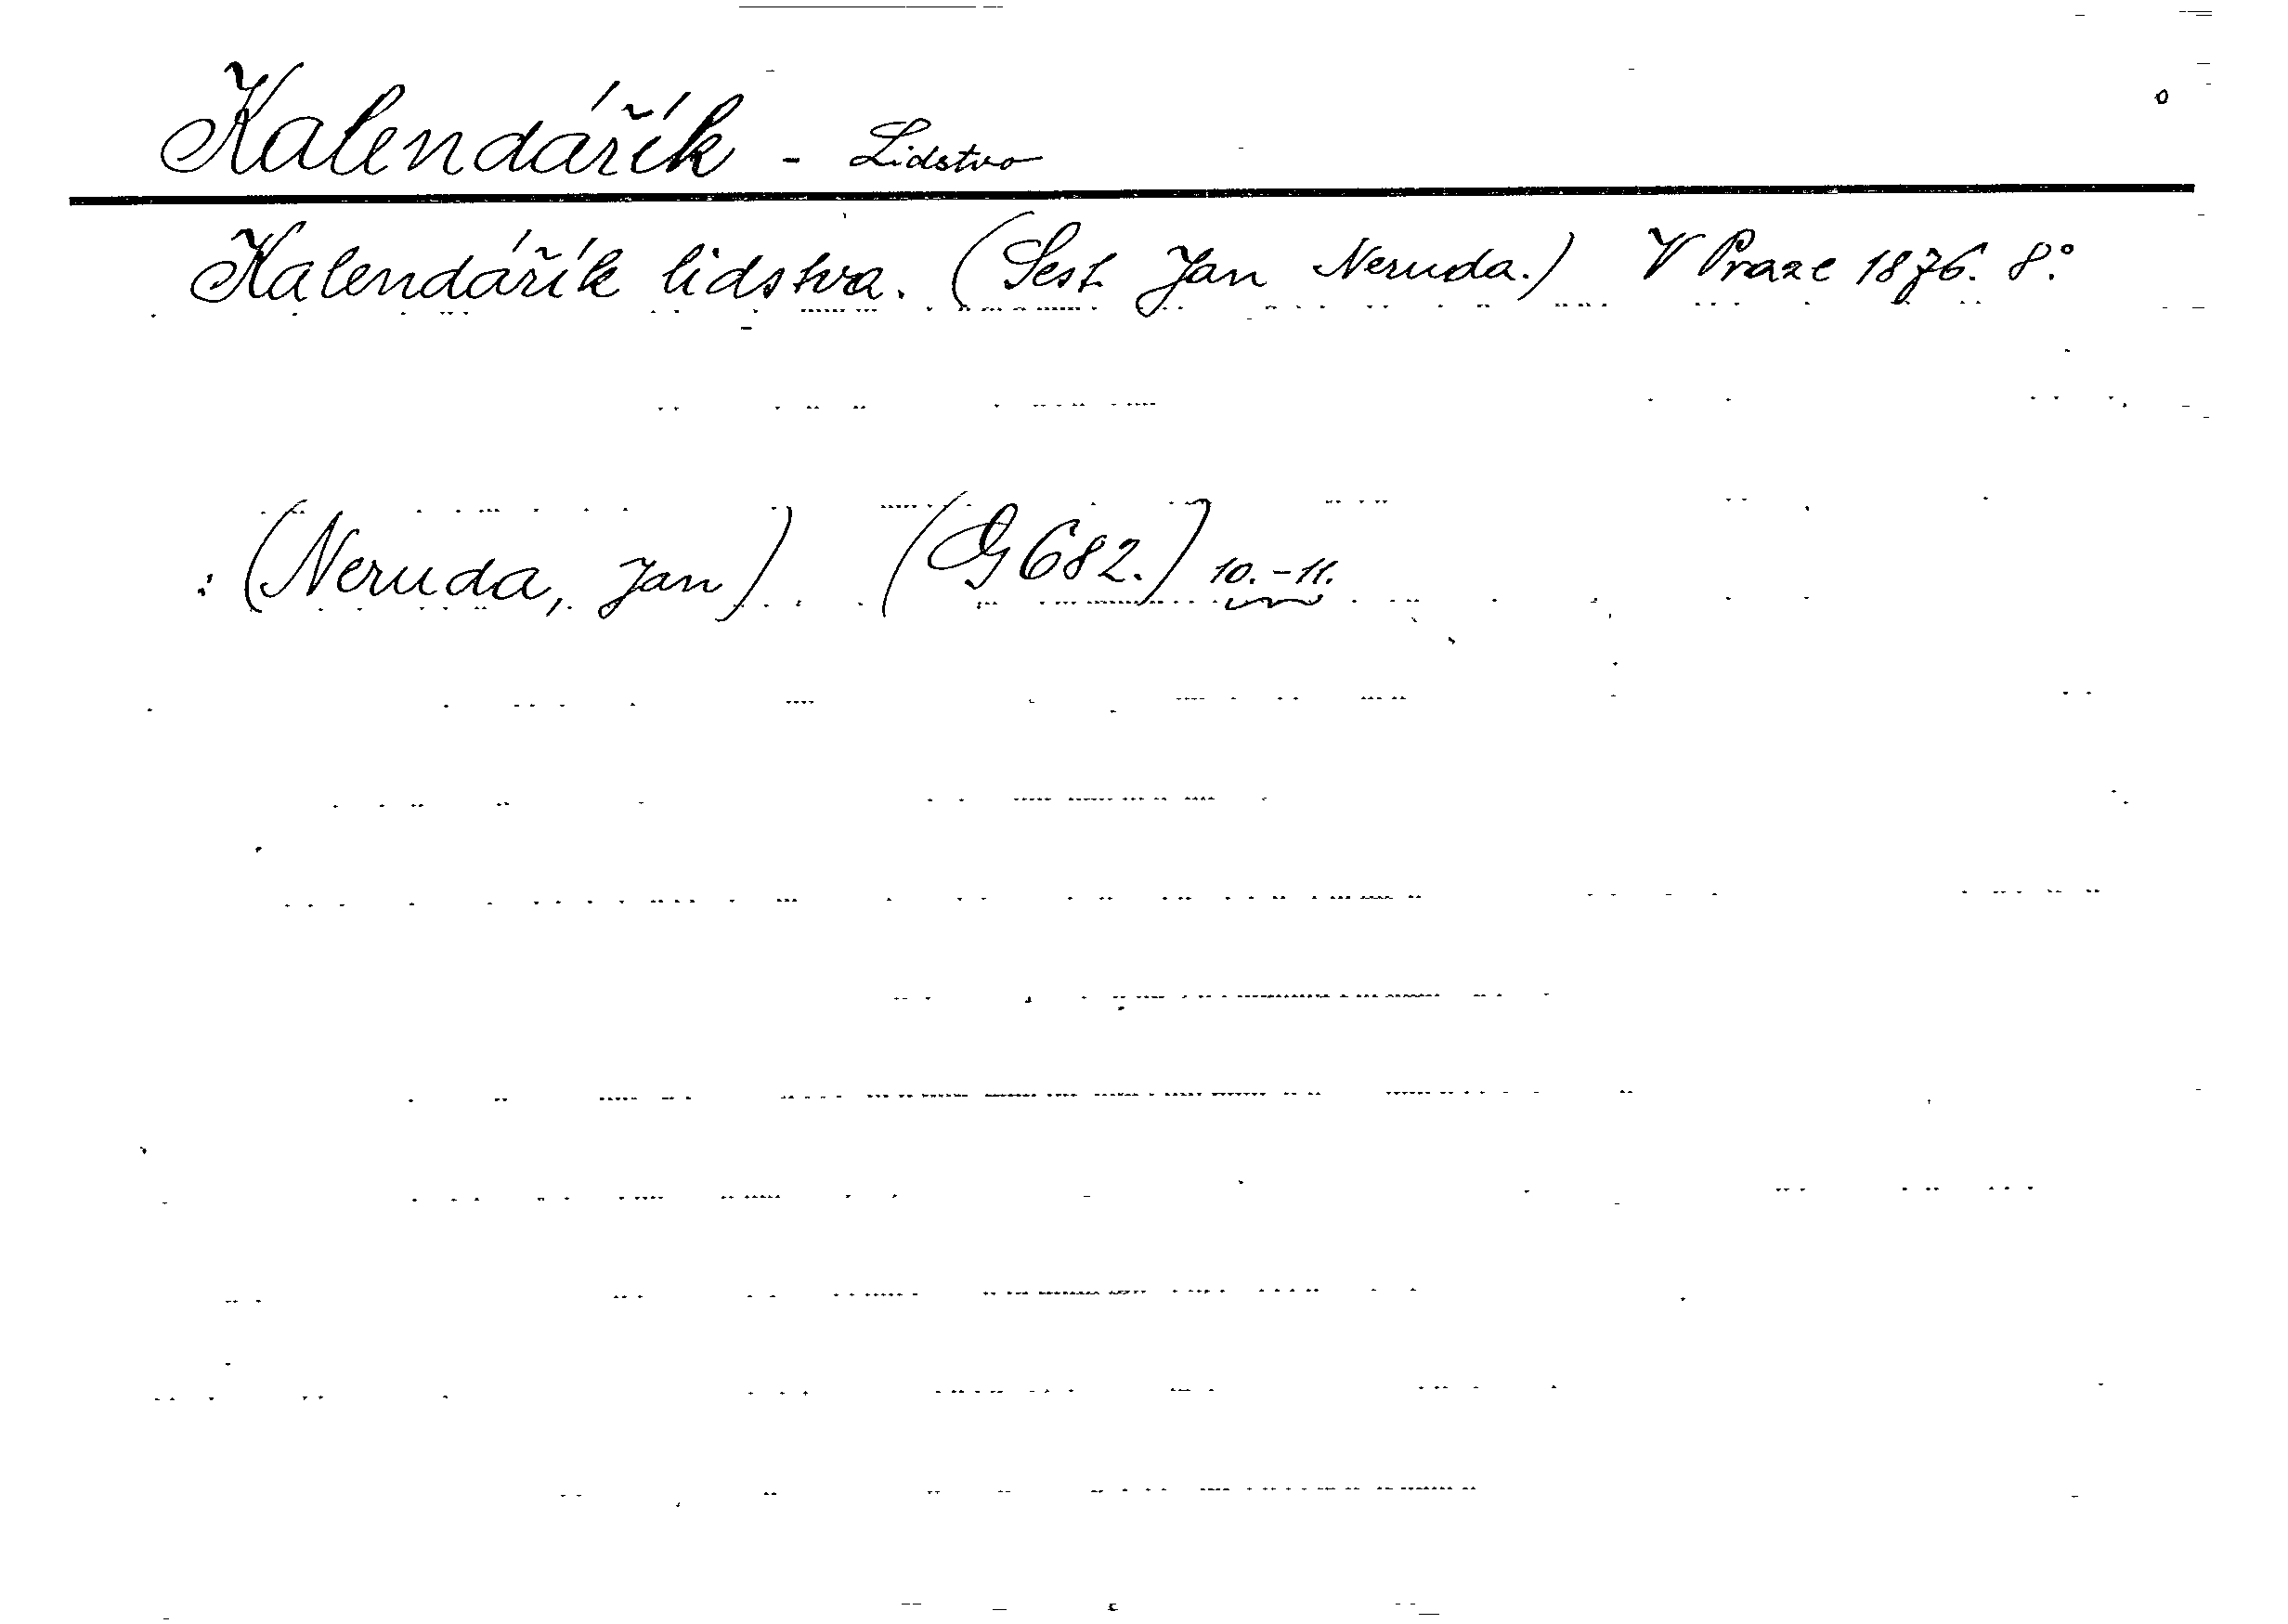 Kalendářík - Lidstvo
Kalendářík lidstva. (Sest. Jan Neruda.) V Praze 1876. 8.°
: (Neruda, Jan) (G 682.) 10.-11.